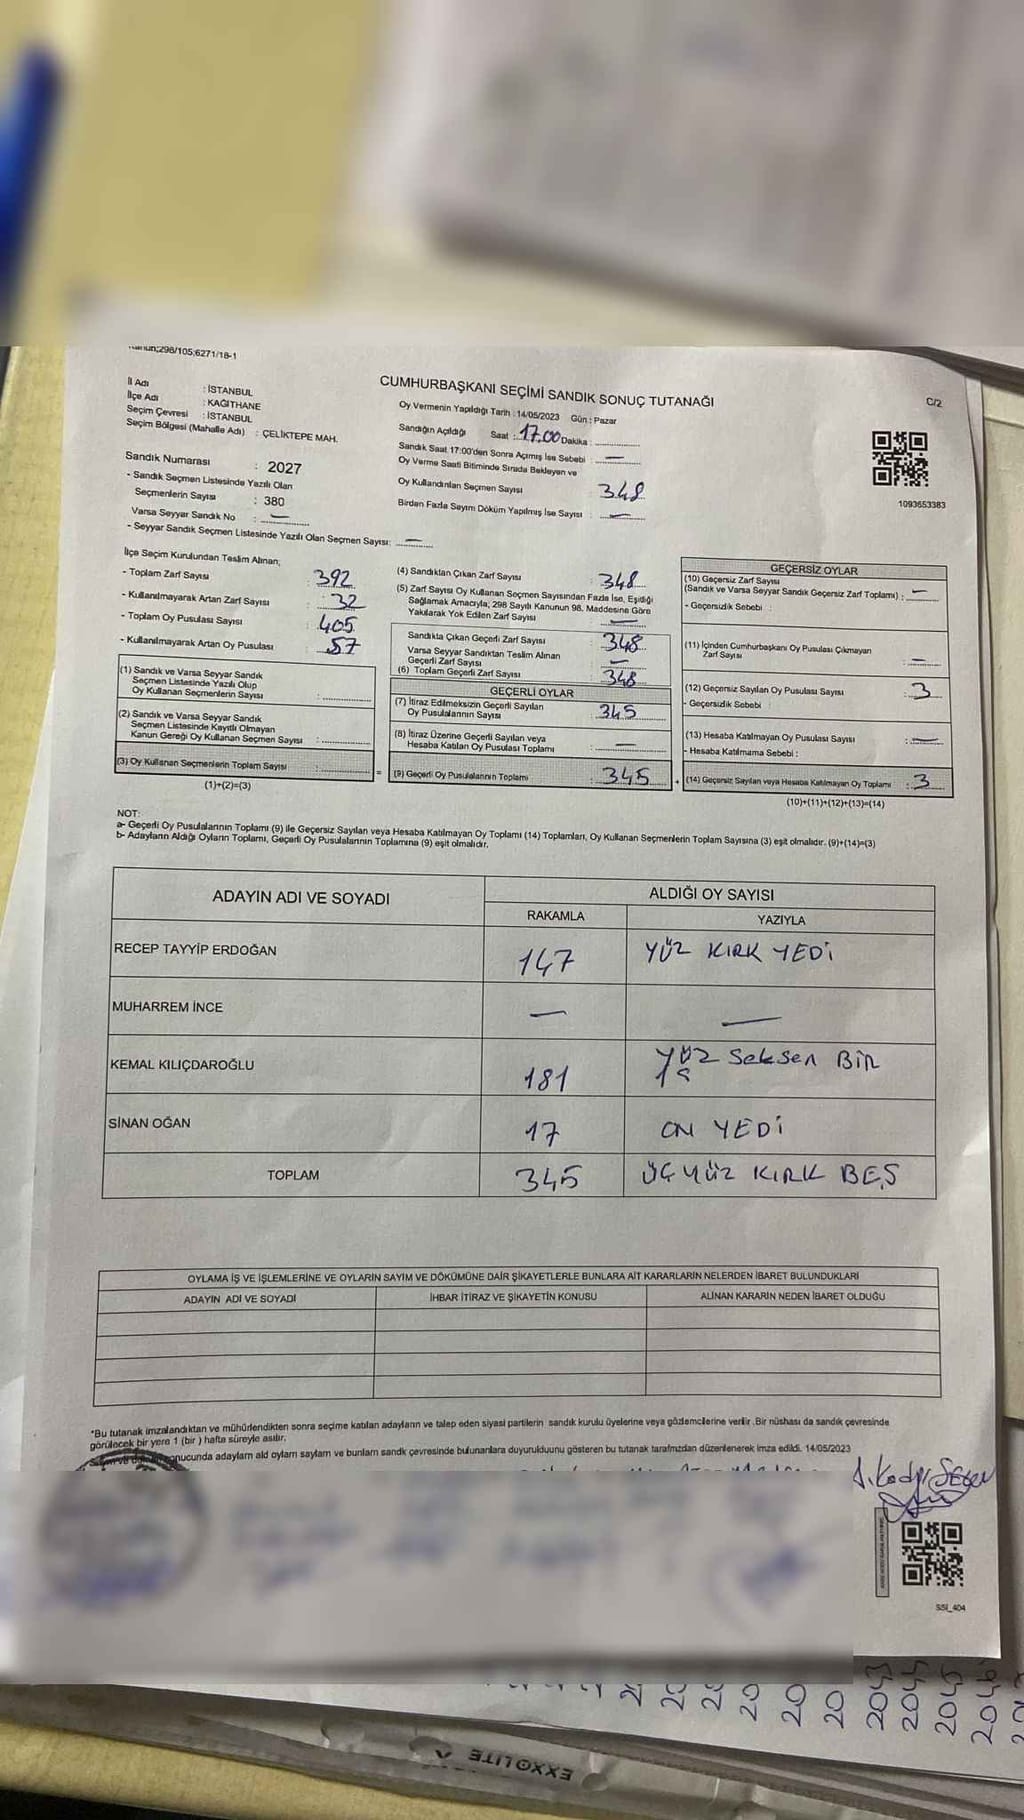 Kanun;298/105;6271/18-1
CUMHURBAŞKANI SEÇİMİ SANDIK SONUÇ TUTANAĞI
C/2
İl Adı : İSTANBUL
İlçe Adı : KAĞITHANE
Seçim Çevresi : İSTANBUL
Seçim Bölgesi (Mahalle Adı) : ÇELİKTEPE MAH.
Sandık Numarası : 2027
- Sandık Seçmen Listesinde Yazılı Olan
Seçmenlerin Sayısı : 380
Varsa Seyyar Sandık No : —
- Seyyar Sandık Seçmen Listesinde Yazılı Olan Seçmen Sayısı: —
Oy Vermenin Yapıldığı Tarih : 14/05/2023 Gün : Pazar
Sandığın Açıldığı Saat : 17.00 Dakika :
Sandık Saat 17:00'den Sonra Açmış İse Sebebi : —
Oy Verme Saati Bitiminde Sırada Bekleyen ve
Oy Kullandırılan Seçmen Sayısı : 348
Birden Fazla Sayım Döküm Yapılmış İse Sayısı : —
1093653383
İlçe Seçim Kurulundan Teslim Alınan;
- Toplam Zarf Sayısı : 392
- Kullanılmayarak Artan Zarf Sayısı : 32
- Toplam Oy Pusulası Sayısı : 405
- Kullanılmayarak Artan Oy Pusulası : 57
(1) Sandık ve Varsa Seyyar Sandık
Seçmen Listesinde Yazılı Olup
Oy Kullanan Seçmenlerin Sayısı :
(2) Sandık ve Varsa Seyyar Sandık
Seçmen Listesinde Kayıtlı Olmayan
Kanun Gereği Oy Kullanan Seçmen Sayısı :
(3) Oy Kullanan Seçmenlerin Toplam Sayısı :
(1)+(2)=(3)
(4) Sandıktan Çıkan Zarf Sayısı : 348
(5) Zarf Sayısı Oy Kullanan Seçmen Sayısından Fazla İse, Eşitliği
Sağlamak Amacıyla; 298 Sayılı Kanunun 98. Maddesine Göre
Yakılarak Yok Edilen Zarf Sayısı : —
Sandıkta Çıkan Geçerli Zarf Sayısı : 348
Varsa Seyyar Sandıktan Teslim Alınan
Geçerli Zarf Sayısı : —
(6) Toplam Geçerli Zarf Sayısı : 348
GEÇERLİ OYLAR
(7) İtiraz Edilmeksizin Geçerli Sayılan
Oy Pusulalarının Sayısı : 345
(8) İtiraz Üzerine Geçerli Sayılan veya
Hesaba Katılan Oy Pusulası Toplamı : —
=
(9) Geçerli Oy Pusulalarının Toplamı : 345
+
GEÇERSİZ OYLAR
(10) Geçersiz Zarf Sayısı
(Sandık ve Varsa Seyyar Sandık Geçersiz Zarf Toplamı) : —
- Geçersizlik Sebebi :
(11) İçinden Cumhurbaşkanı Oy Pusulası Çıkmayan
Zarf Sayısı : —
(12) Geçersiz Sayılan Oy Pusulası Sayısı : 3
- Geçersizlik Sebebi :
(13) Hesaba Katılmayan Oy Pusulası Sayısı : —
- Hesaba Katılmama Sebebi :
(14) Geçersiz Sayılan veya Hesaba Katılmayan Oy Toplamı : 3
(10)+(11)+(12)+(13)=(14)
NOT:
a- Geçerli Oy Pusulalarının Toplamı (9) ile Geçersiz Sayılan veya Hesaba Katılmayan Oy Toplamı (14) Toplamları, Oy Kullanan Seçmenlerin Toplam Sayısına (3) eşit olmalıdır. (9)+(14)=(3)
b- Adayların Aldığı Oyların Toplamı, Geçerli Oy Pusulalarının Toplamına (9) eşit olmalıdır.
ADAYIN ADI VE SOYADI
ALDIĞI OY SAYISI
RAKAMLA YAZIYLA
RECEP TAYYİP ERDOĞAN 147 YÜZ KIRK YEDİ
MUHARREM İNCE — —
KEMAL KILIÇDAROĞLU 181 YÜZ SekSen BİR
SİNAN OĞAN 17 ON YEDİ
TOPLAM 345 ÜÇYÜZ KIRK BEŞ
OYLAMA İŞ VE İŞLEMLERİNE VE OYLARIN SAYIM VE DÖKÜMÜNE DAİR ŞİKAYETLERLE BUNLARA AİT KARARLARIN NELERDEN İBARET BULUNDUKLARI
ADAYIN ADI VE SOYADI İHBAR İTİRAZ VE ŞİKAYETİN KONUSU ALINAN KARARIN NEDEN İBARET OLDUĞU
*Bu tutanak imzalandıktan ve mühürlendikten sonra seçime katılan adayların ve talep eden siyasi partilerin sandık kurulu üyelerine veya gözlemcilerine verilir .Bir nüshası da sandık çevresinde
görülecek bir yere 1 (bir ) hafta süreyle asılır.
sonucunda adayların aldı oyların sayların ve bunların sandık çevresinde bulunanlara duyurulduunu gösteren bu tutanak tarafımızdan düzenlenerek imza edildi. 14/05/2023
SSİ_404
2043
2044
2045
2046
EXXOLITE